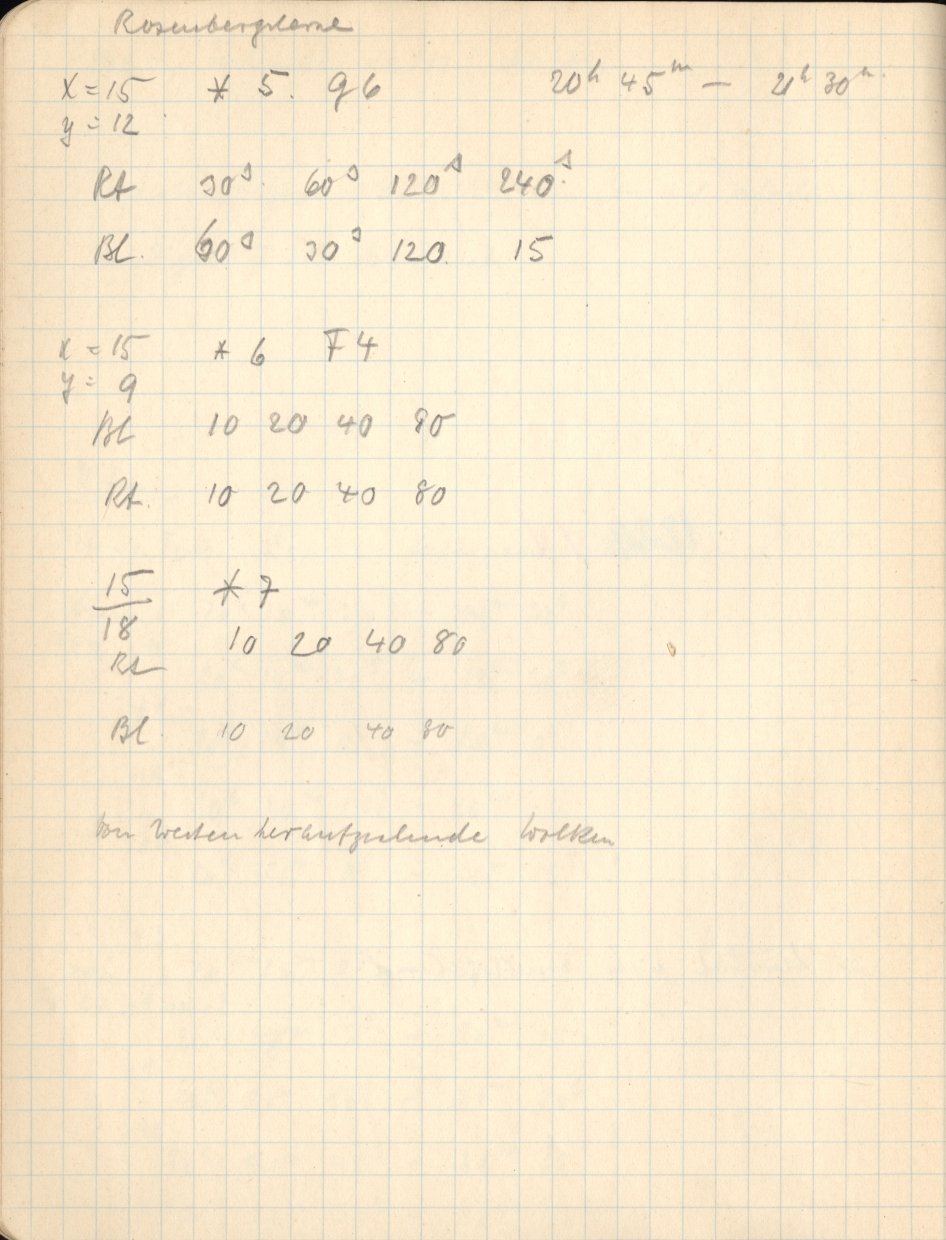 Rosenbergsterne
x = 15 * 5. g6 20h 45m — 21h 30m
y = 12
Rt 30s 60s 120s 240s
Bl. 60s 30s 120 15
x = 15 * 6 F4
y = 9
Bl 10 20 40 80
Rt. 10 20 40 80
15 * 7
18 10 20 40 80
Rt
Bl. 10 20 40 80
von Westen heraufziehende Wolken